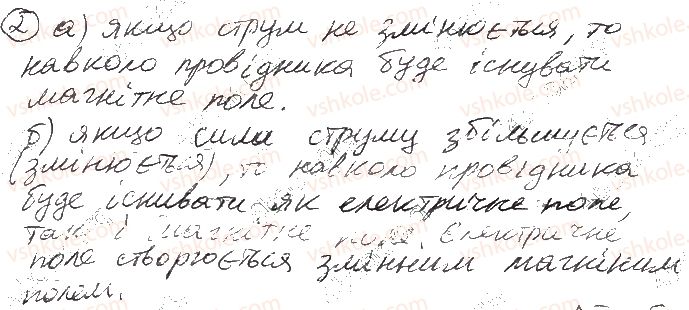 2 а) якщо струм не змінюється, то
навколо провідника буде існувати
магнітне поле.
б) якщо сила струму збільшується
(змінюється), то навколо провідника
буде існивати як електричне поле,
так і магнітне поле. Електричне
поле створюється змінним магніним
полем.